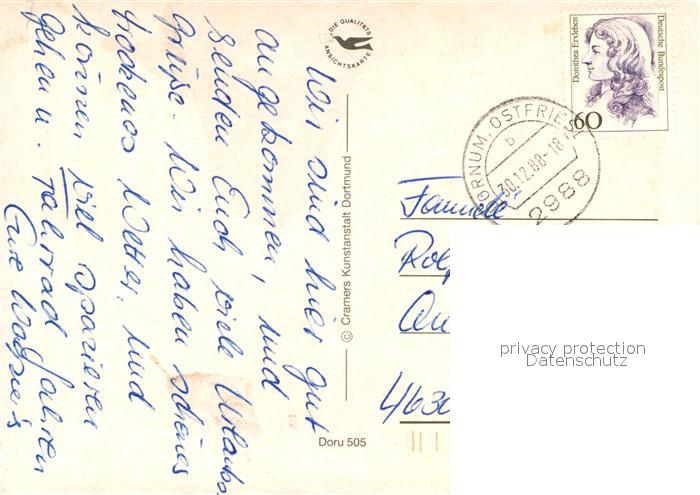 Wir sind hier gut
angekommen, und
senden Euch viele Urlaubs-
grüße. Wir haben schönes
trockenes Wetter, und
können viel spazieren
gehen u. Fahrrad fahren
Eure Wagner's
DIE QUALITÄTS
ANSICHTSKARTE
© Cramers Kunstanstalt Dortmund
Doru 505
Dorothea Erxleben
Deutsche Bundespost
60
DORNUM, OSTFRIESL
b
30.12.88-18
2988
Familie
Rol
An
4630
privacy protection
Datenschutz